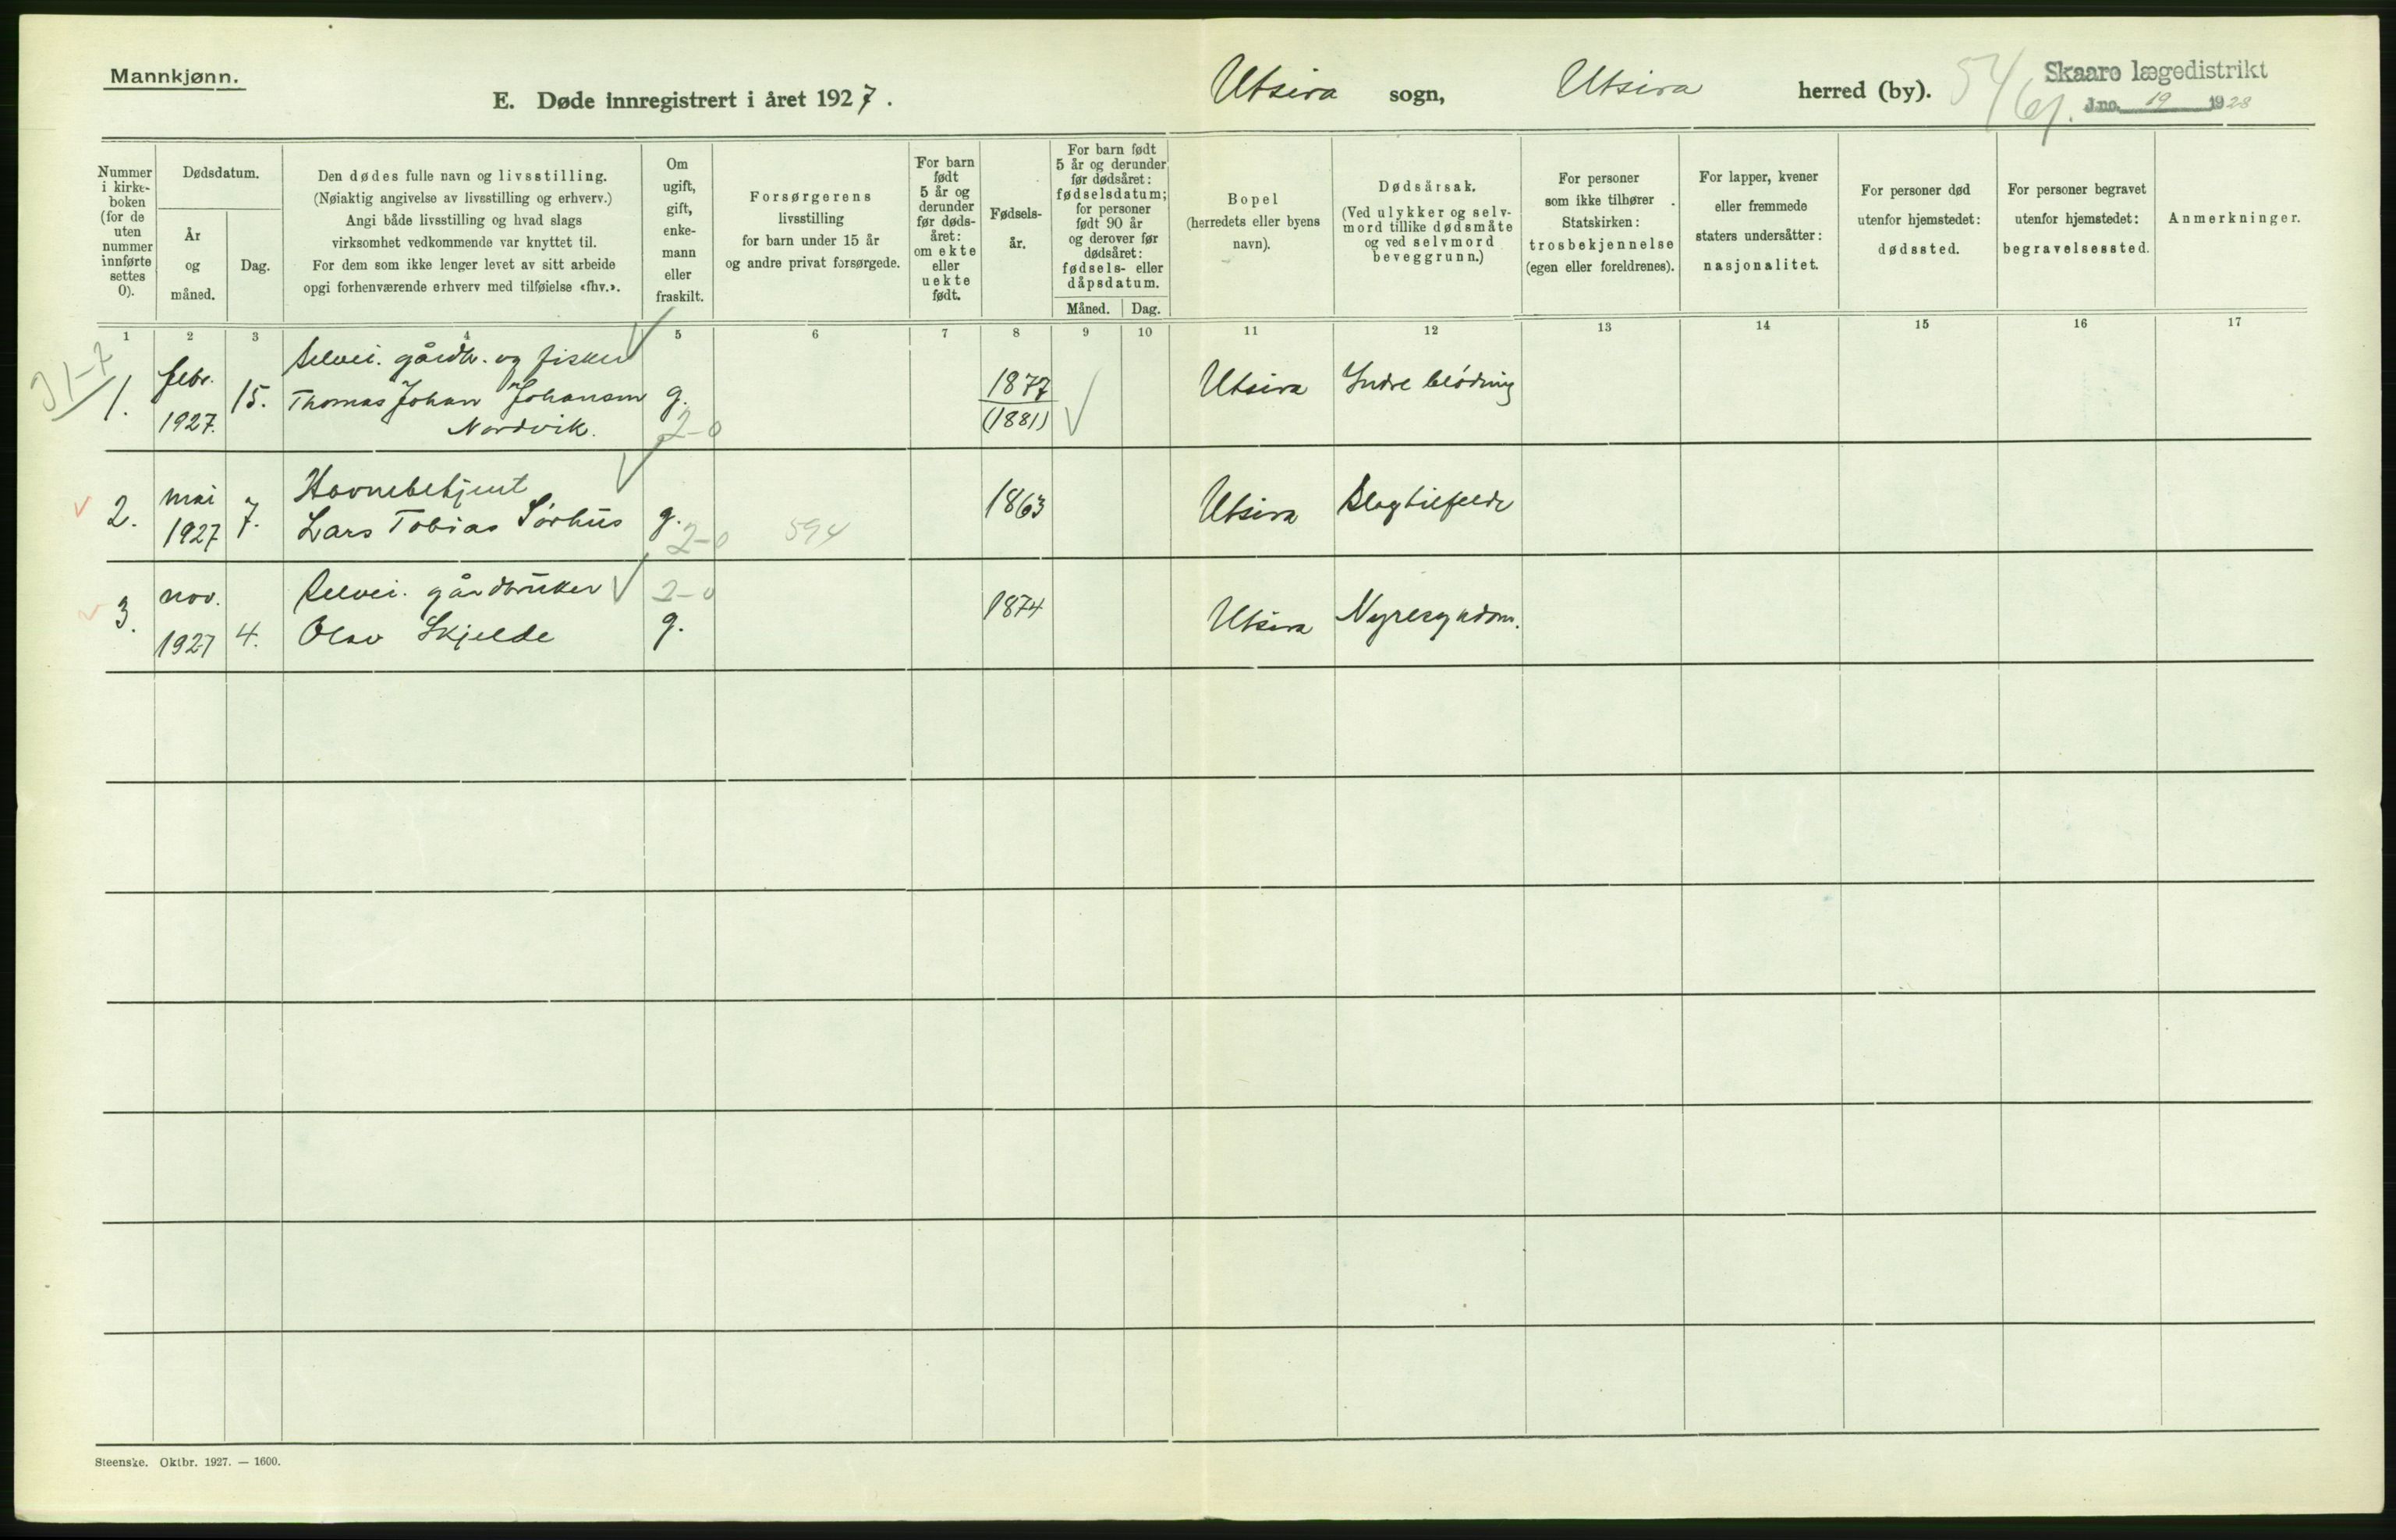 Mannkjønn.
E. Døde innregistrert i året 1927.
Utsira sogn, Utsira herred (by).
Skaare lægedistrikt
J.no. 19 1928
Nummer i kirke-
boken
(for de
uten
nummer
innførte
settes
0).
Dødsdatum.
År
og
måned.
Dag.
Den dødes fulle navn og livsstilling.
(Nøiaktig angivelse av livsstilling og erhverv.)
Angi både livsstilling og hvad slags
virksomhet vedkommende var knyttet til.
For dem som ikke lenger levet av sitt arbeide
opgi forhenværende erhverv med tilføielse «fhv.».
Om
ugift,
gift,
enke-
mann
eller
fraskilt.
Forsørgerens
livsstilling
for barn under 15 år
og andre privat forsørgede.
For barn
født
5 år og
derunder
før døds-
året:
om ekte
eller
uekte
født.
Fødsels-
år.
For barn født
5 år og derunder
før dødsåret:
fødselsdatum;
for personer
født 90 år
og derover før
dødsåret:
fødsels- eller
dåpsdatum.
Måned. Dag.
Bopel
(herredets eller byens
navn).
Dødsårsak.
(Ved ulykker og selv-
mord tillike dødsmåte
og ved selvmord
beveggrunn.)
For personer
som ikke tilhører
Statskirken:
trosbekjennelse
(egen eller foreldrenes).
For lapper, kvener
eller fremmede
staters undersåtter:
nasjonalitet.
For personer død
utenfor hjemstedet:
dødssted.
For personer begravet
utenfor hjemstedet:
begravelsessted.
Anmerkninger.
1 2 3 4 5 6 7 8 9 10 11 12 13 14 15 16 17
1. febr. 1927. 15.
Selvei. gårdbr. og fisker
Thomas Johan Johansen
Nordvik.
g.
2-0
1877
(1881)
Utsira
Indre blødning
2. mai 1927 7.
Havnebetjent
Lars Tobias Sørhus
g.
2-0
594
1863
Utsira
Slagtilfelde
3. nov. 1927 4.
Selvei. gårdbruker
Olav Skjelde
2-0
g.
1874
Utsira
Nyresykdom.
Steenske. Oktbr. 1927. — 1600.